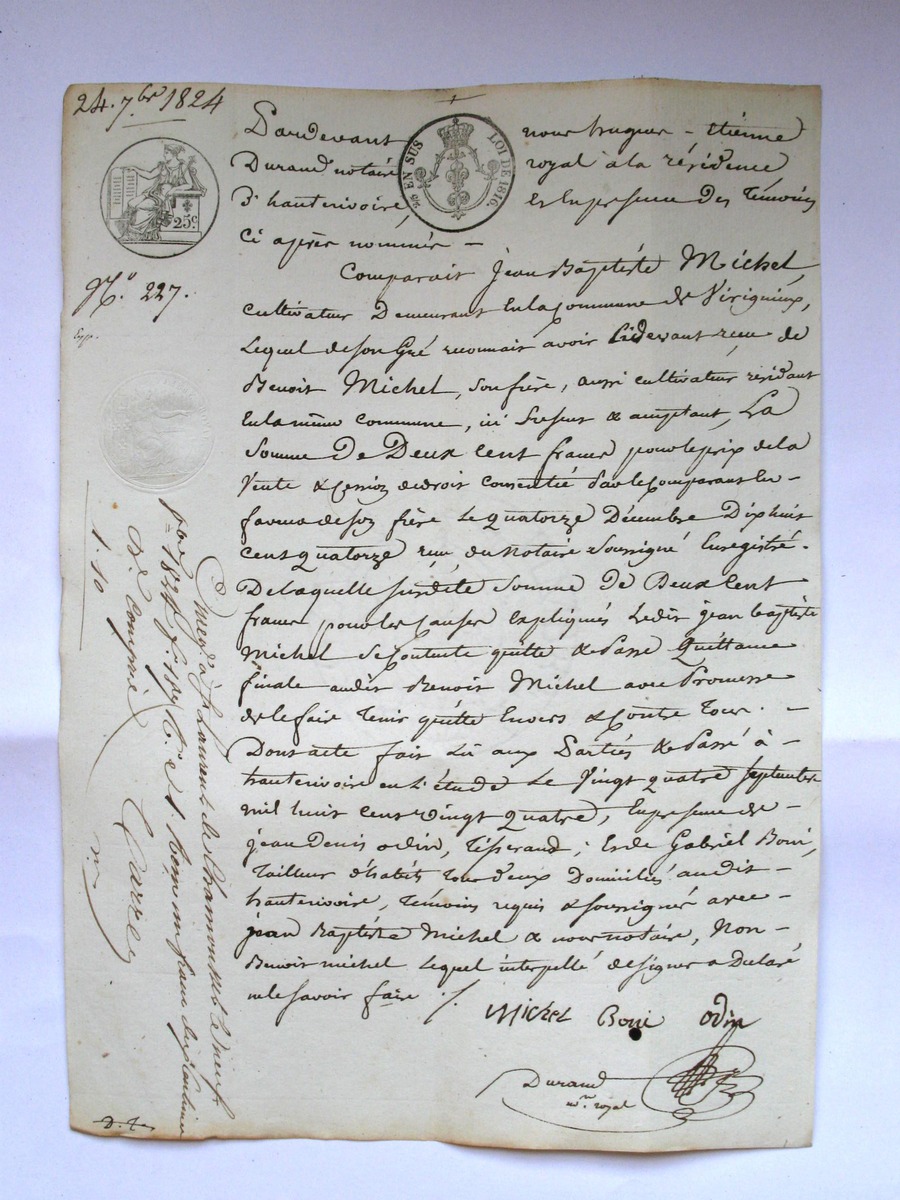 24. 7bre 1824
Pardevant nous hugues - étienne
Durand notaire royal à la résidence
d'hauterivoire, et en presence des témoins
ci après nommés -
5/10 EN SUS
LOI DE 1816
25c
No. 227.
Exp.
Comparait jean Baptiste Michel,
cultivateur Demeurant en la Commune de Virigneux,
Lequel de son Gré reconnait avoir cidevant reçu de
Benoit Michel, son frère, aussi cultivateur résidant
en la même commune, ici present & acceptant, La
Somme De Deux Cent francs pour le prix de la
Vente & cession de droit consentie par le Comparant en -
faveur de son frère Le quatorze Décembre Dix huit
cent quatorze reçu du Notaire soussigné Enregistré.
De laquelle susdite Somme de Deux Cent
francs pour les Causes Expliqués Ledit jean baptiste
Michel se Contente quitte & Passe Quittance
finale audit Benoit Michel avec Promesse
de le faire tenir quitte Envers & Contre Tous. -
Dont acte fait Lû aux Parties & Passé à -
hauterivoire en L'étude Le Vingt quatre septembre
mil huit cent vingt quatre, En presence de -
jean Denis odin, Tisserand; et de Gabriel Boni,
Tailleur d'habits tous deux Domiciliés audit -
hauterivoire, témoins requis & soussignés avec -
jean Baptiste Michel & nous notaire, Non -
Benoit michel Lequel interpellé de signer a Déclaré
ne le savoir faire ./.
Michel Boni odin
Durand
nre. royal
Enregé à St Laurent de Chamousset Le neuf
8bre 1824 reçu un franc dix centimes
Dme compris
1.10